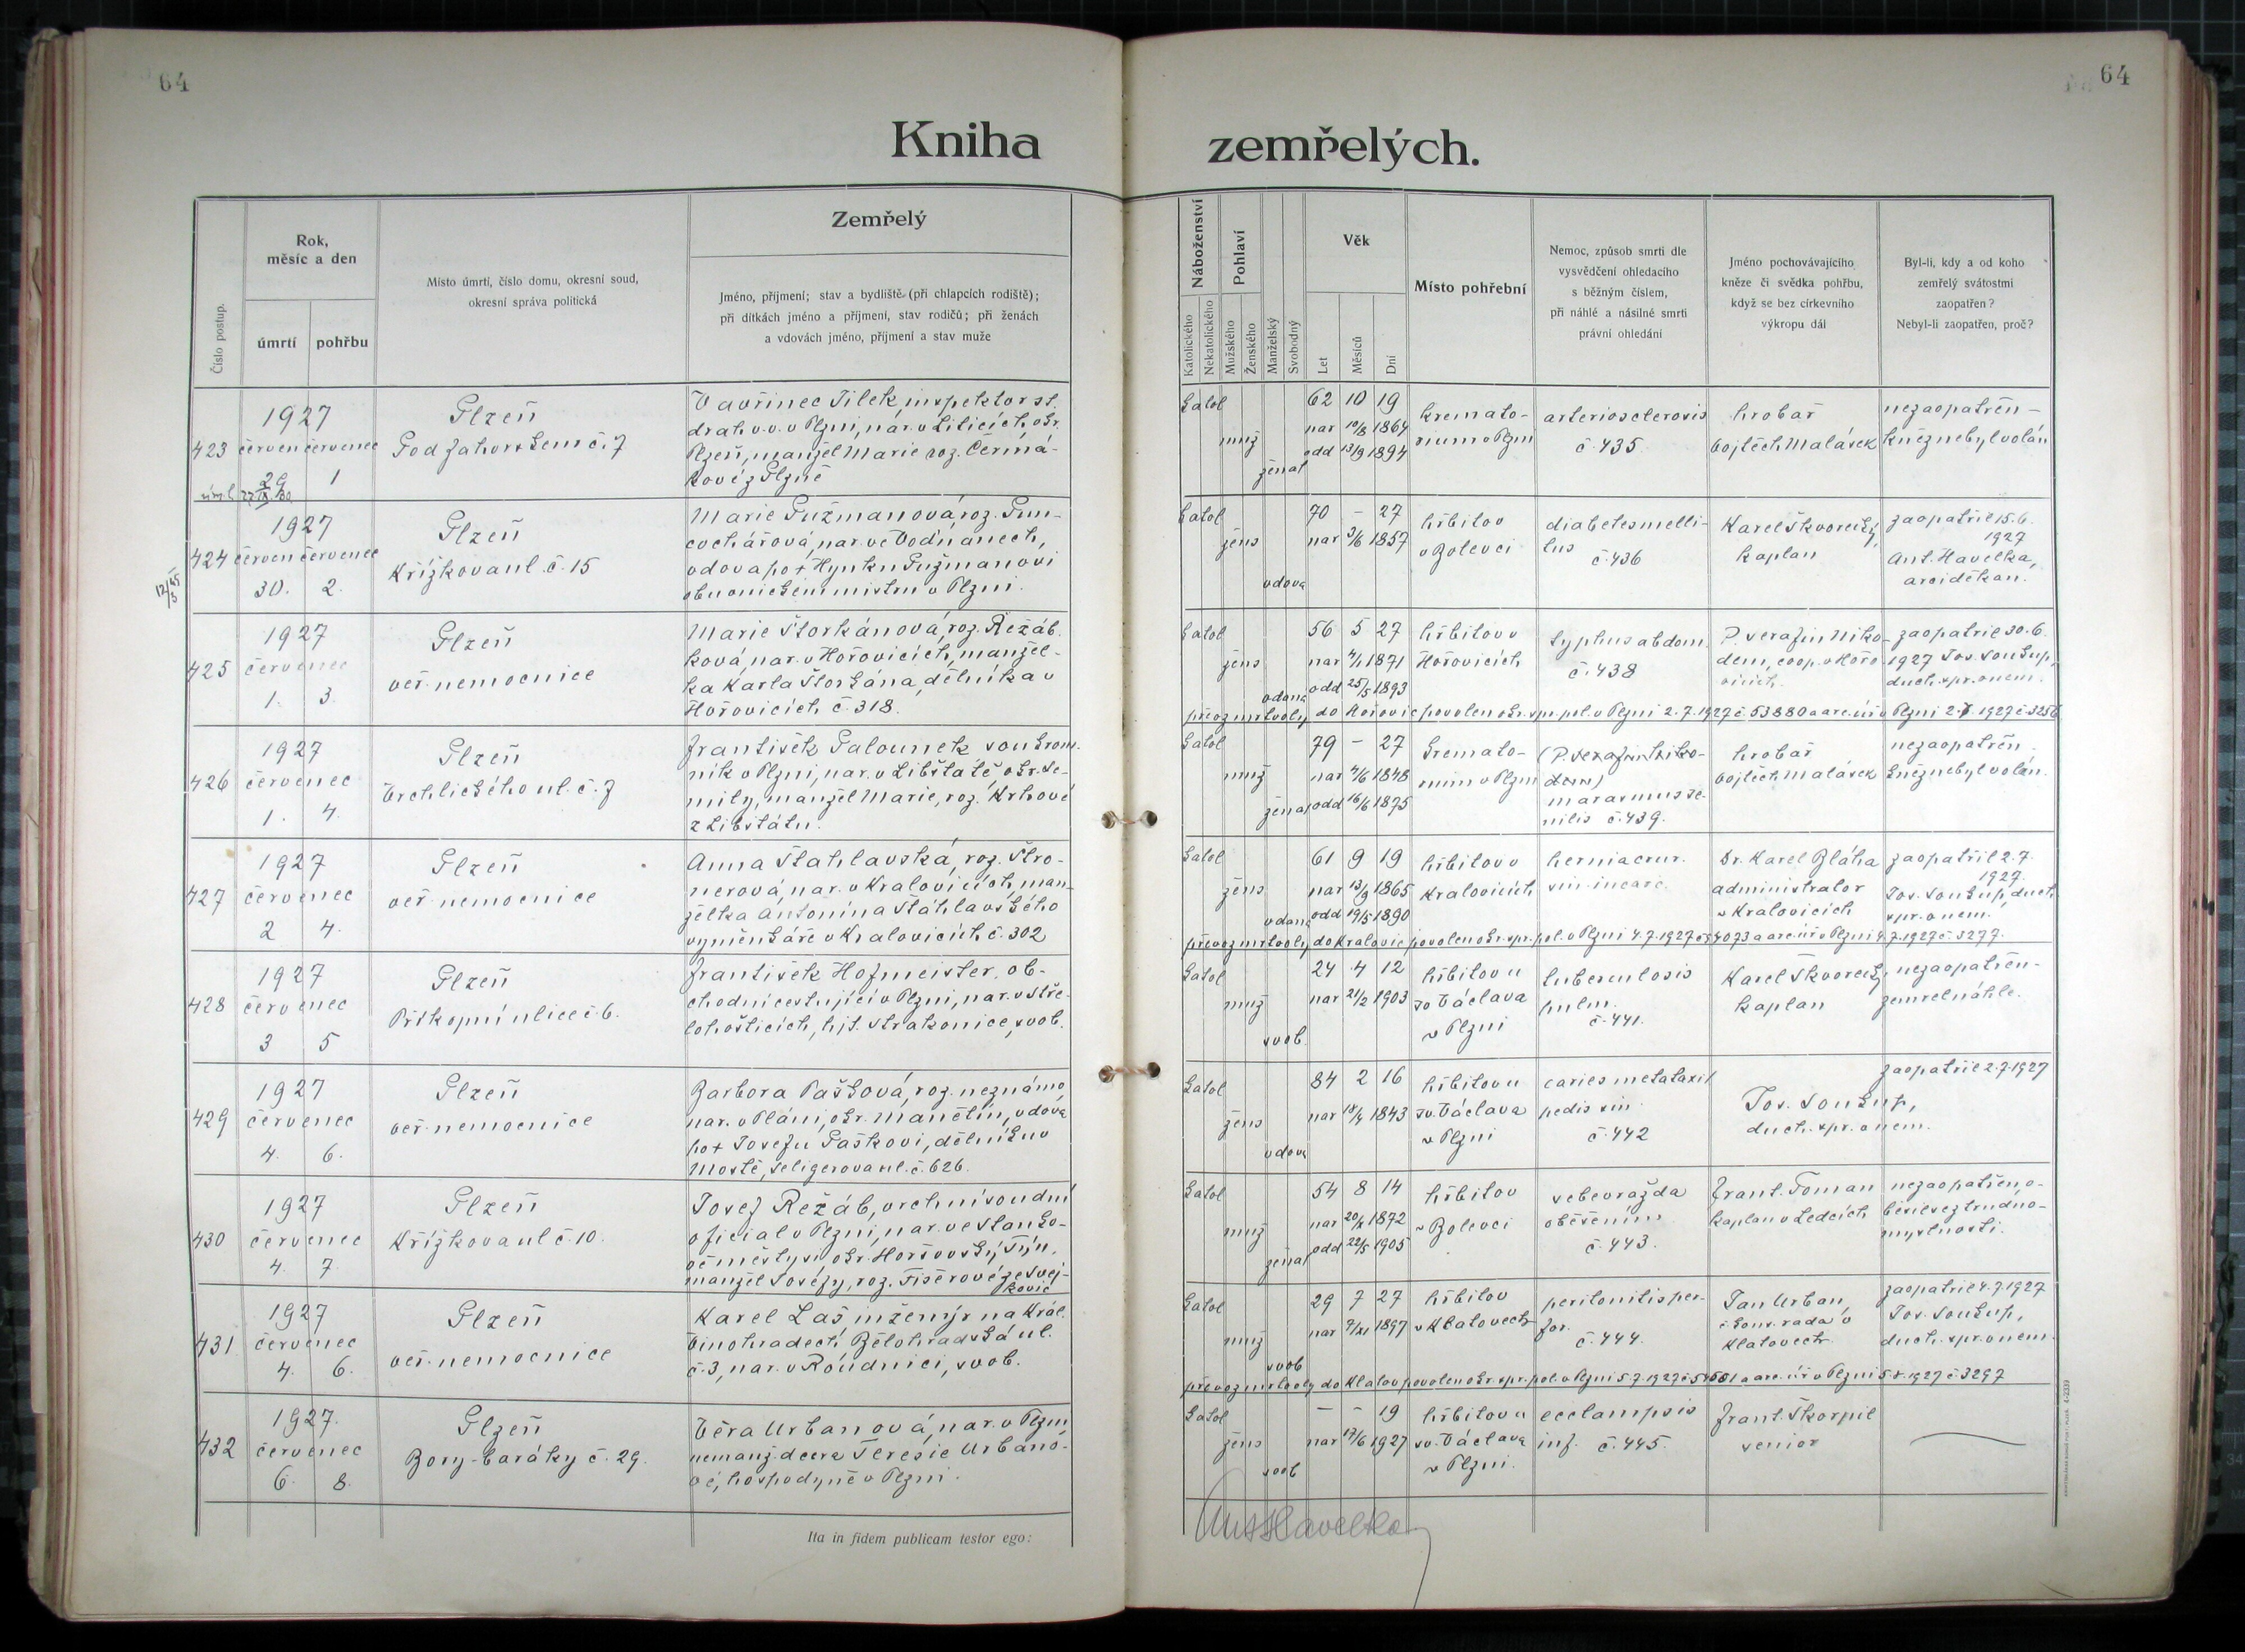 64
64
Kniha zemřelých.
Číslo postup.
Rok,
měsíc a den
úmrtí
pohřbu
Místo úmrtí, číslo domu, okresní soud,
okresní správa politická
Zemřelý
Jméno, příjmení; stav a bydliště (při chlapcích rodiště);
při dítkách jméno a příjmení, stav rodičů; při ženách
a vdovách jméno, příjmení a stav muže
Náboženství
Katolického
Nekatolického
Pohlaví
Mužského
Ženského
Manželský
Svobodný
Věk
Let
Měsíců
Dní
Místo pohřební
Nemoc, způsob smrti dle
vysvědčení ohledacího
s běžným číslem,
při náhlé a násilné smrti
právní ohledání
Jméno pochovávajícího
kněze či svědka pohřbu,
když se bez církevního
výkropu dál
Byl-li, kdy a od koho
zemřelý svátostmi
zaopatřen?
Nebyl-li zaopatřen, proč?
423
1927
červen červenec
29 1
Plzeň
Pod Záhorskem č. 7
Vavřinec Tilek, inspektor st.
drah v.v. v Plzni, nar. v Liticích, okr.
Plzeň, manžel Marie roz. Čermá-
kové z Plzně
katol
muž
ženat
62 10 19
nar 10/8 1864
odd 13/9 1894
kremato-
rium v Plzni
arteriosclerosis
č. 435
hrobař
Vojtěch Malásek
nezaopatřen -
kněz nebyl volán
424
1927
červen červenec
30. 2.
Plzeň
Křížkova ul. č. 15
Marie Pužmanová, roz. Pun-
cochářová, nar. ve Vodňanech,
vdova po + Hynku Pužmanovi
obuvnickém mistru v Plzni.
katol
žens
vdova
70 - 27
nar 3/6 1857
hřbitov
v Bolevci
diabetes melli-
tus
č. 436
Karel Škvorecký,
kaplan
zaopatřil 15.6.
1927
Ant. Havelka,
arciděkan.
425
1927
červenec
1. 3.
Plzeň
veř. nemocnice
Marie Štorkánová, roz. Režáb-
ková, nar. v Hořovicích, manžel-
ka Karla Štorkána, dělníka v
Hořovicích č. 318.
katol
žens
vdaná
56 5 27
nar 4/1 1871
odd 25/5 1893
hřbitov v
Hořovicích
typhus abdom.
č. 438
P. Serafin Niko-
dem, coop. v Hořo-
vicích.
zaopatřil 30.6.
1927 Jos. Soukup,
duch. spr. v nem.
převoz mrtvoly do Hořovic povolen okr. spr. pol. v Plzni 2.7.1927 č. 53880 a arc. úř. v Plzni 2.7.1927 č. 3256
426
1927
červenec
1. 4.
Plzeň
Vrchlického ul. č. 7
František Palounek soukrom-
ník v Plzni, nar. v Libštátě okr. Se-
mily, manžel Marie, roz. Krhové
z Libštátu.
katol
muž
ženat
79 - 27
nar 4/6 1848
odd 16/6 1875
kremato-
rium v Plzni
(P. Serafin Niko-
dem)
marasmus se-
nilis č. 439.
hrobař
Vojtěch Malásek
nezaopatřen
kněz nebyl volán.
427
1927
červenec
2 4.
Plzeň
veř. nemocnice
Anna Šťáhlavská, roz. Štro-
nerová, nar. v Kralovicích, man-
želka Antonína Šťáhlavského
výměnkáře v Kralovicích č. 302
katol
žens
vdaná
61 9 19
nar 13/9 1865
odd 19/5 1890
hřbitov v
Kralovicích
hernia crur.
sin. incarc.
Dr. Karel Bláha
administrator
v Kralovicích
zaopatřil 2.7.
1927.
Jos. Soukup, duch.
spr. v nem.
převoz mrtvoly do Kralovic povolen okr. spr. pol. v Plzni 4.7.1927 č. 54073 a arc. úř. v Plzni 4.7.1927 č. 3277.
428
1927
červenec
3 5
Plzeň
Příkopní ulice č. 6.
František Hofmeister, ob-
chodní cestující v Plzni, nar. v Stře-
lohošticích, hjt. Strakonice, svob.
katol
muž
svob.
24 4 12
nar 21/2 1903
hřbitov u
sv. Václava
v Plzni
tuberculosis
pulm.
č. 441.
Karel Škvorecký,
kaplan
nezaopatřen-
zemřel náhle.
429
1927
červenec
4. 6.
Plzeň
veř. nemocnice
Barbora Pašková, roz. neznámo,
nar. v Pláni, okr. Manětín, vdova
po + Josefu Paškovi, dělníku v
Mostě, Seligerova ul. č. 626.
katol
žens
vdova
84 2 16
nar 18/4 1843
hřbitov u
sv. Václava
v Plzni
caries metatarsi
pedis sin.
č. 442
Jos. Soukup,
duch. spr. v nem.
zaopatřil 2.7.1927
430
1927
červenec
4. 7.
Plzeň
Křížkova ul. č. 10.
Josef Režáb, vrchní soudní
oficial v Plzni, nar. ve Staňko-
vě městys, okr. Horšovský Týn,
manžel Josefy, roz. Fišerové ze Svej-
kovic
katol
muž
ženat
54 8 14
nar 20/X 1872
odd 22/5 1905
hřbitov
v Bolevci
sebevražda
oběšením
č. 443.
Frant. Toman
kaplan v Ledcích
nezaopatřen, o-
běsil se z trudno-
myslnosti.
431
1927
červenec
4. 6.
Plzeň
veř. nemocnice
Karel Laš inženýr na Král.
Vinohradech, Bělohradská ul.
č. 3, nar. v Roudnici, svob.
katol
muž
svob
29 7 27
nar 7/XI 1897
hřbitov
v Klatovech
peritonitis per-
for.
č. 444.
Jan Urban,
č. kons. rada v
Klatovech
zaopatřil 4.7.1927
Jos. Soukup,
duch. spr. v nem.
převoz mrtvoly do Klatov povolen okr. spr. pol. v Plzni 5.7.1927 a arc. úř. v Plzni 1927 č. 3297
432
1927.
červenec
6. 8.
Plzeň
Bory-baráky č. 29.
Věra Urbanová, nar. v Plzni
nemanž. dcera Teresie Urbano-
vé, hospodyně v Plzni.
katol
žens
svob
- - 19
nar 17/6 1927
hřbitov u
sv. Václava
v Plzni.
ecclampsis
inf. č. 445.
Frant. Škorpil
senior
Ita in fidem publicam testor ego:
Ant Havelka